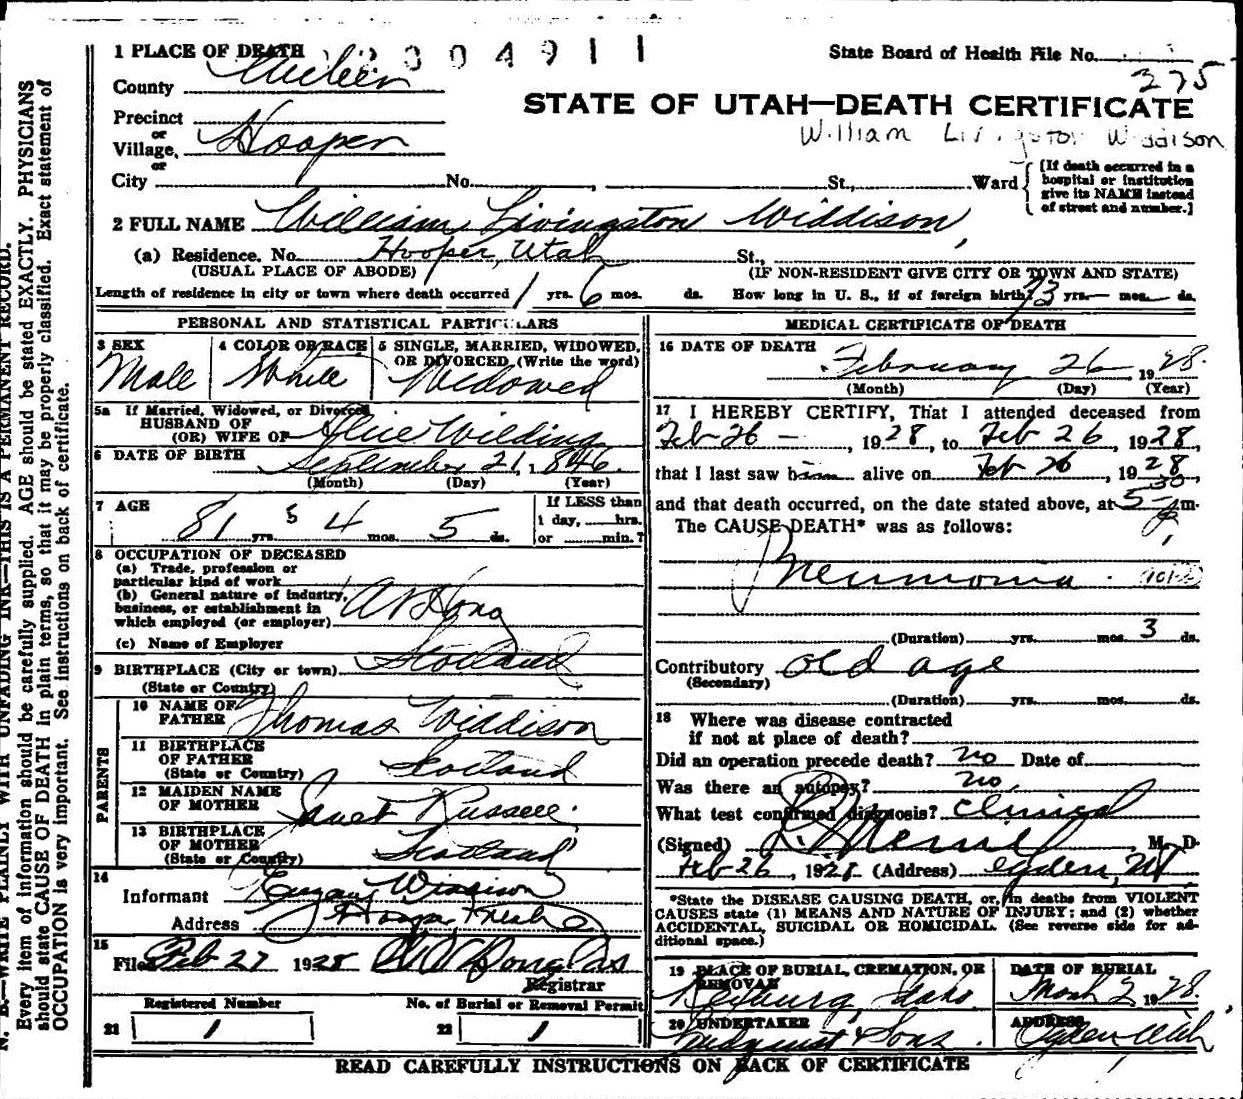 N. B.—WRITE PLAINLY WITH UNFADING INK—THIS IS A PERMANENT RECORD.
Every item of information should be carefully supplied. AGE should be stated EXACTLY. PHYSICIANS
should state CAUSE OF DEATH in plain terms, so that it may be properly classified. Exact statement of
OCCUPATION is very important. See instructions on back of certificate.
1 PLACE OF DEATH 2804911 State Board of Health File No. 275
County
STATE OF UTAH—DEATH CERTIFICATE
William Livingston Widdison
Precinct
or
Village, Hooper
or
City No. , St., Ward
[If death occurred in a
hospital or institution
give its NAME instead
of street and number.]
2 FULL NAME William Livingston Widdison,
(a) Residence. No. Hooper, Utah St.,
(USUAL PLACE OF ABODE) (IF NON-RESIDENT GIVE CITY OR TOWN AND STATE)
Length of residence in city or town where death occurred 1 yrs. 6 mos. ds. How long in U. S., if of foreign birth? 73 yrs. mos. ds.
PERSONAL AND STATISTICAL PARTICULARS
3 SEX 4 COLOR OR RACE 5 SINGLE, MARRIED, WIDOWED,
OR DIVORCED, (Write the word)
Male White Widowed
5a If Married, Widowed, or Divorced
HUSBAND OF
(OR) WIFE OF Alice Wilding
6 DATE OF BIRTH September 21, 1846.
(Month) (Day) (Year)
7 AGE 81 yrs. 5 4 mos. 5 ds.
If LESS than
1 day, hrs.
or min.?
8 OCCUPATION OF DECEASED
(a) Trade, profession or
particular kind of work
(b) General nature of industry,
business, or establishment in
which employed (or employer)
(c) Name of Employer
9 BIRTHPLACE (City or town) Scotland
(State or Country)
PARENTS
10 NAME OF
FATHER Thomas Widdison
11 BIRTHPLACE
OF FATHER
(State or Country) Scotland
12 MAIDEN NAME
OF MOTHER Janet Russell.
13 BIRTHPLACE
OF MOTHER
(State or Country) Scotland
14
Informant Widdison
Address Hooper Utah
15
Filed Feb 27 1928 Douglas
Registrar
Registered Number No. of Burial or Removal Permit
21 1 22 1
MEDICAL CERTIFICATE OF DEATH
16 DATE OF DEATH
February 26 1928.
(Month) (Day) (Year)
17 I HEREBY CERTIFY, That I attended deceased from
Feb 26 — , 1928, to Feb 26, 1928,
that I last saw him alive on Feb 26, 1928,
and that death occurred, on the date stated above, at 5 30 p m.
The CAUSE DEATH* was as follows:
Pneumonia.
(Duration) yrs. mos. 3 ds.
Contributory old age
(Secondary)
(Duration) yrs. mos. ds.
18 Where was disease contracted
if not at place of death?
Did an operation precede death? no Date of
Was there an autopsy? no
What test confirmed diagnosis? Clinical
(Signed) Merrill, M. D.
Feb 26, 1928 (Address) Ogden, Ut
*State the DISEASE CAUSING DEATH, or, in deaths from VIOLENT
CAUSES state (1) MEANS AND NATURE OF INJURY; and (2) whether
ACCIDENTAL, SUICIDAL OR HOMICIDAL. (See reverse side for ad-
ditional space.)
19 PLACE OF BURIAL, CREMATION, OR
REMOVAL DATE OF BURIAL
Rexburg, Idaho March 2 1928.
20 UNDERTAKER ADDRESS
Lindquist & Sons. Ogden, Utah
READ CAREFULLY INSTRUCTIONS ON BACK OF CERTIFICATE